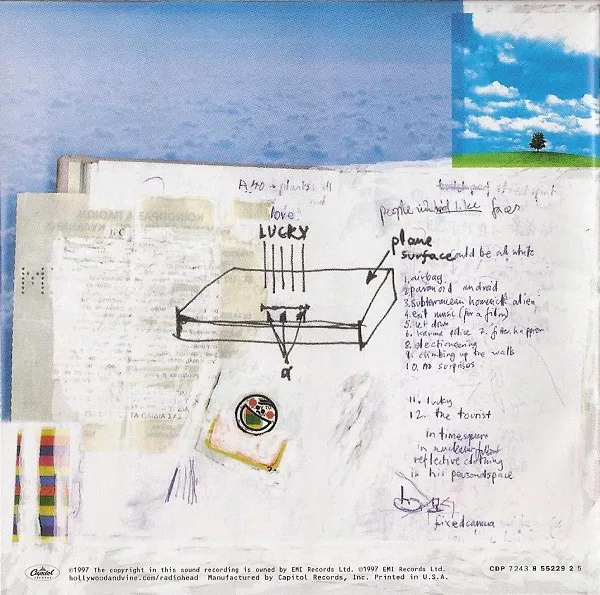 A40 → plants
people who'd like faces
love
LUCKY
plane
surface
could be all white
M
1. airbag
2. paranoid android
3. subterranean homesick alien
4. exit music (for a film)
5. let down
6. karma police 7. fitter happier
8. electioneering
9. climbing up the walls
10. no surprises
11. lucky
12. the tourist
in timesquare
in nuclear fallout
reflective clothing
in his personal space
fixed camera
Capitol
RECORDS
©1997 The copyright in this sound recording is owned by EMI Records Ltd. ℗1997 EMI Records Ltd.
hollywoodandvine.com/radiohead Manufactured by Capitol Records, Inc. Printed in U.S.A.
CDP 7243 8 55229 2 5